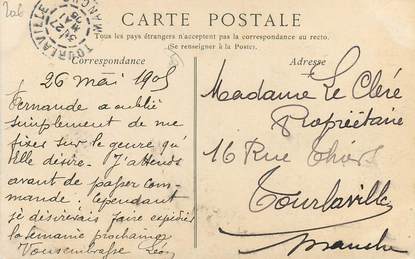 206
TOURLAVILLE
MANCHE
CARTE POSTALE
Tous les pays étrangers n'acceptent pas la correspondance au recto.
(Se renseigner à la Poste).
Correspondance
Adresse
26 Mai 1905
Fernande a oublié
simplement de me
fixer sur le genre qu'
elle désire. J'attends
avant de passer com-
mande. Cependant
je désirerais faire expédier
la semaine prochaine
Vous embrasse Léon
Madame Le Cléré
Propriétaire
16 Rue Thiers
Tourlaville
Manche